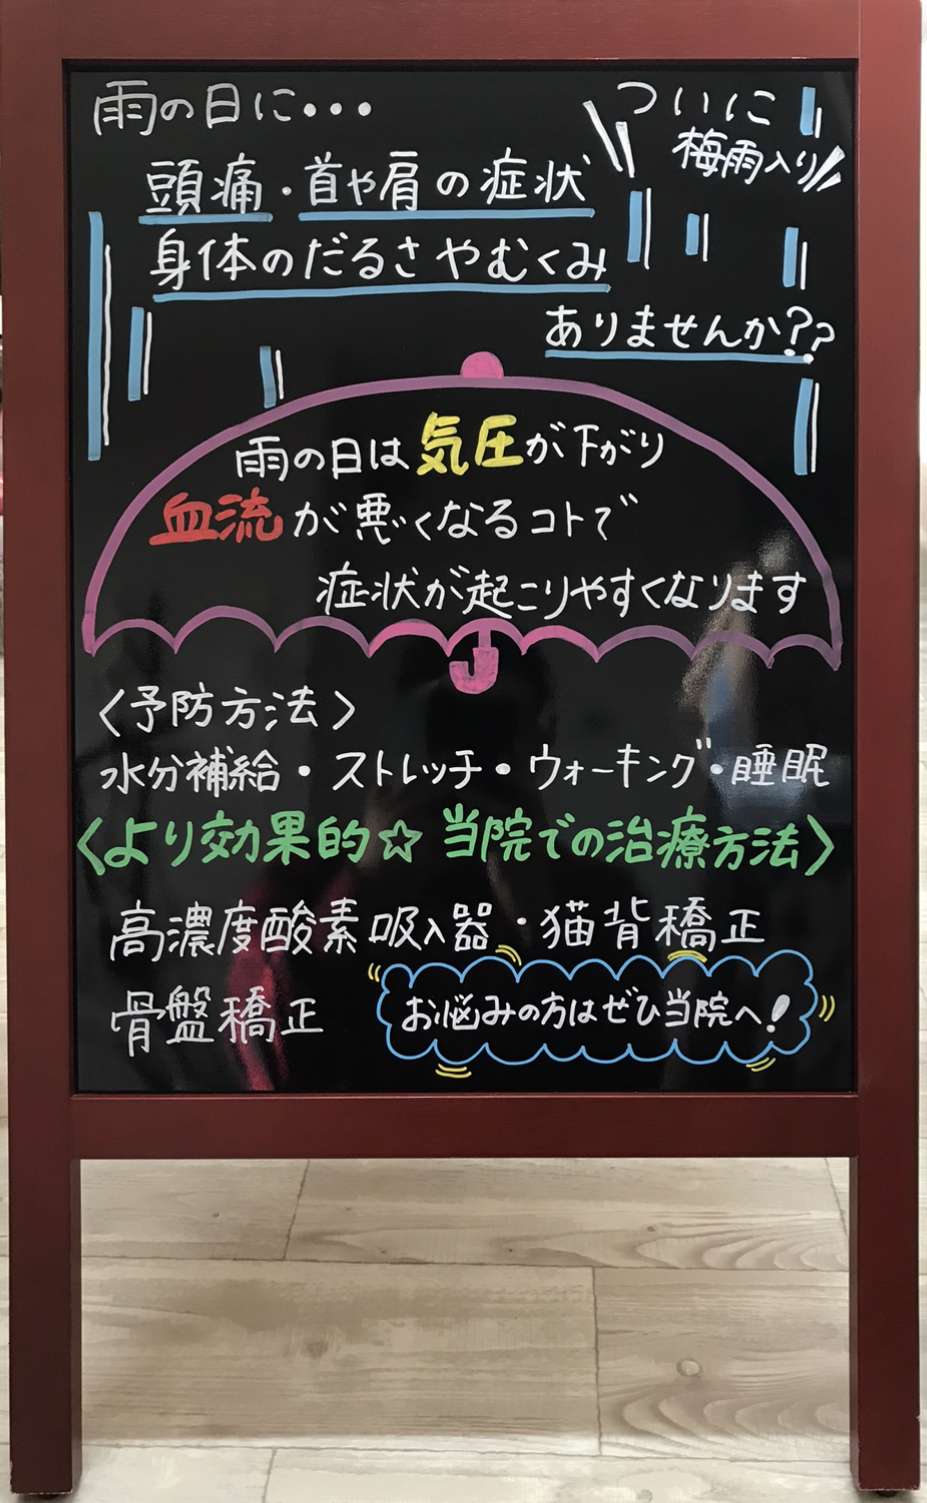 雨の日に・・・
ついに
梅雨入り
頭痛・首や肩の症状
身体のだるさやむくみ
ありませんか??
雨の日は気圧が下がり
血流が悪くなるコトで
症状が起こりやすくなります
〈予防方法〉
水分補給・ストレッチ・ウォーキング・睡眠
〈より効果的☆当院での治療方法〉
高濃度酸素吸入器・猫背矯正
骨盤矯正
お悩みの方はぜひ当院へ!